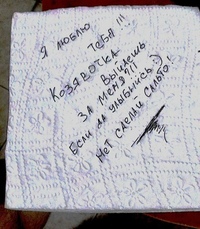 Я люблю
тебя!!!
Козявочка
выйдешь
за меня?!!
Если да улыбнись :)
Нет сделай сальто!